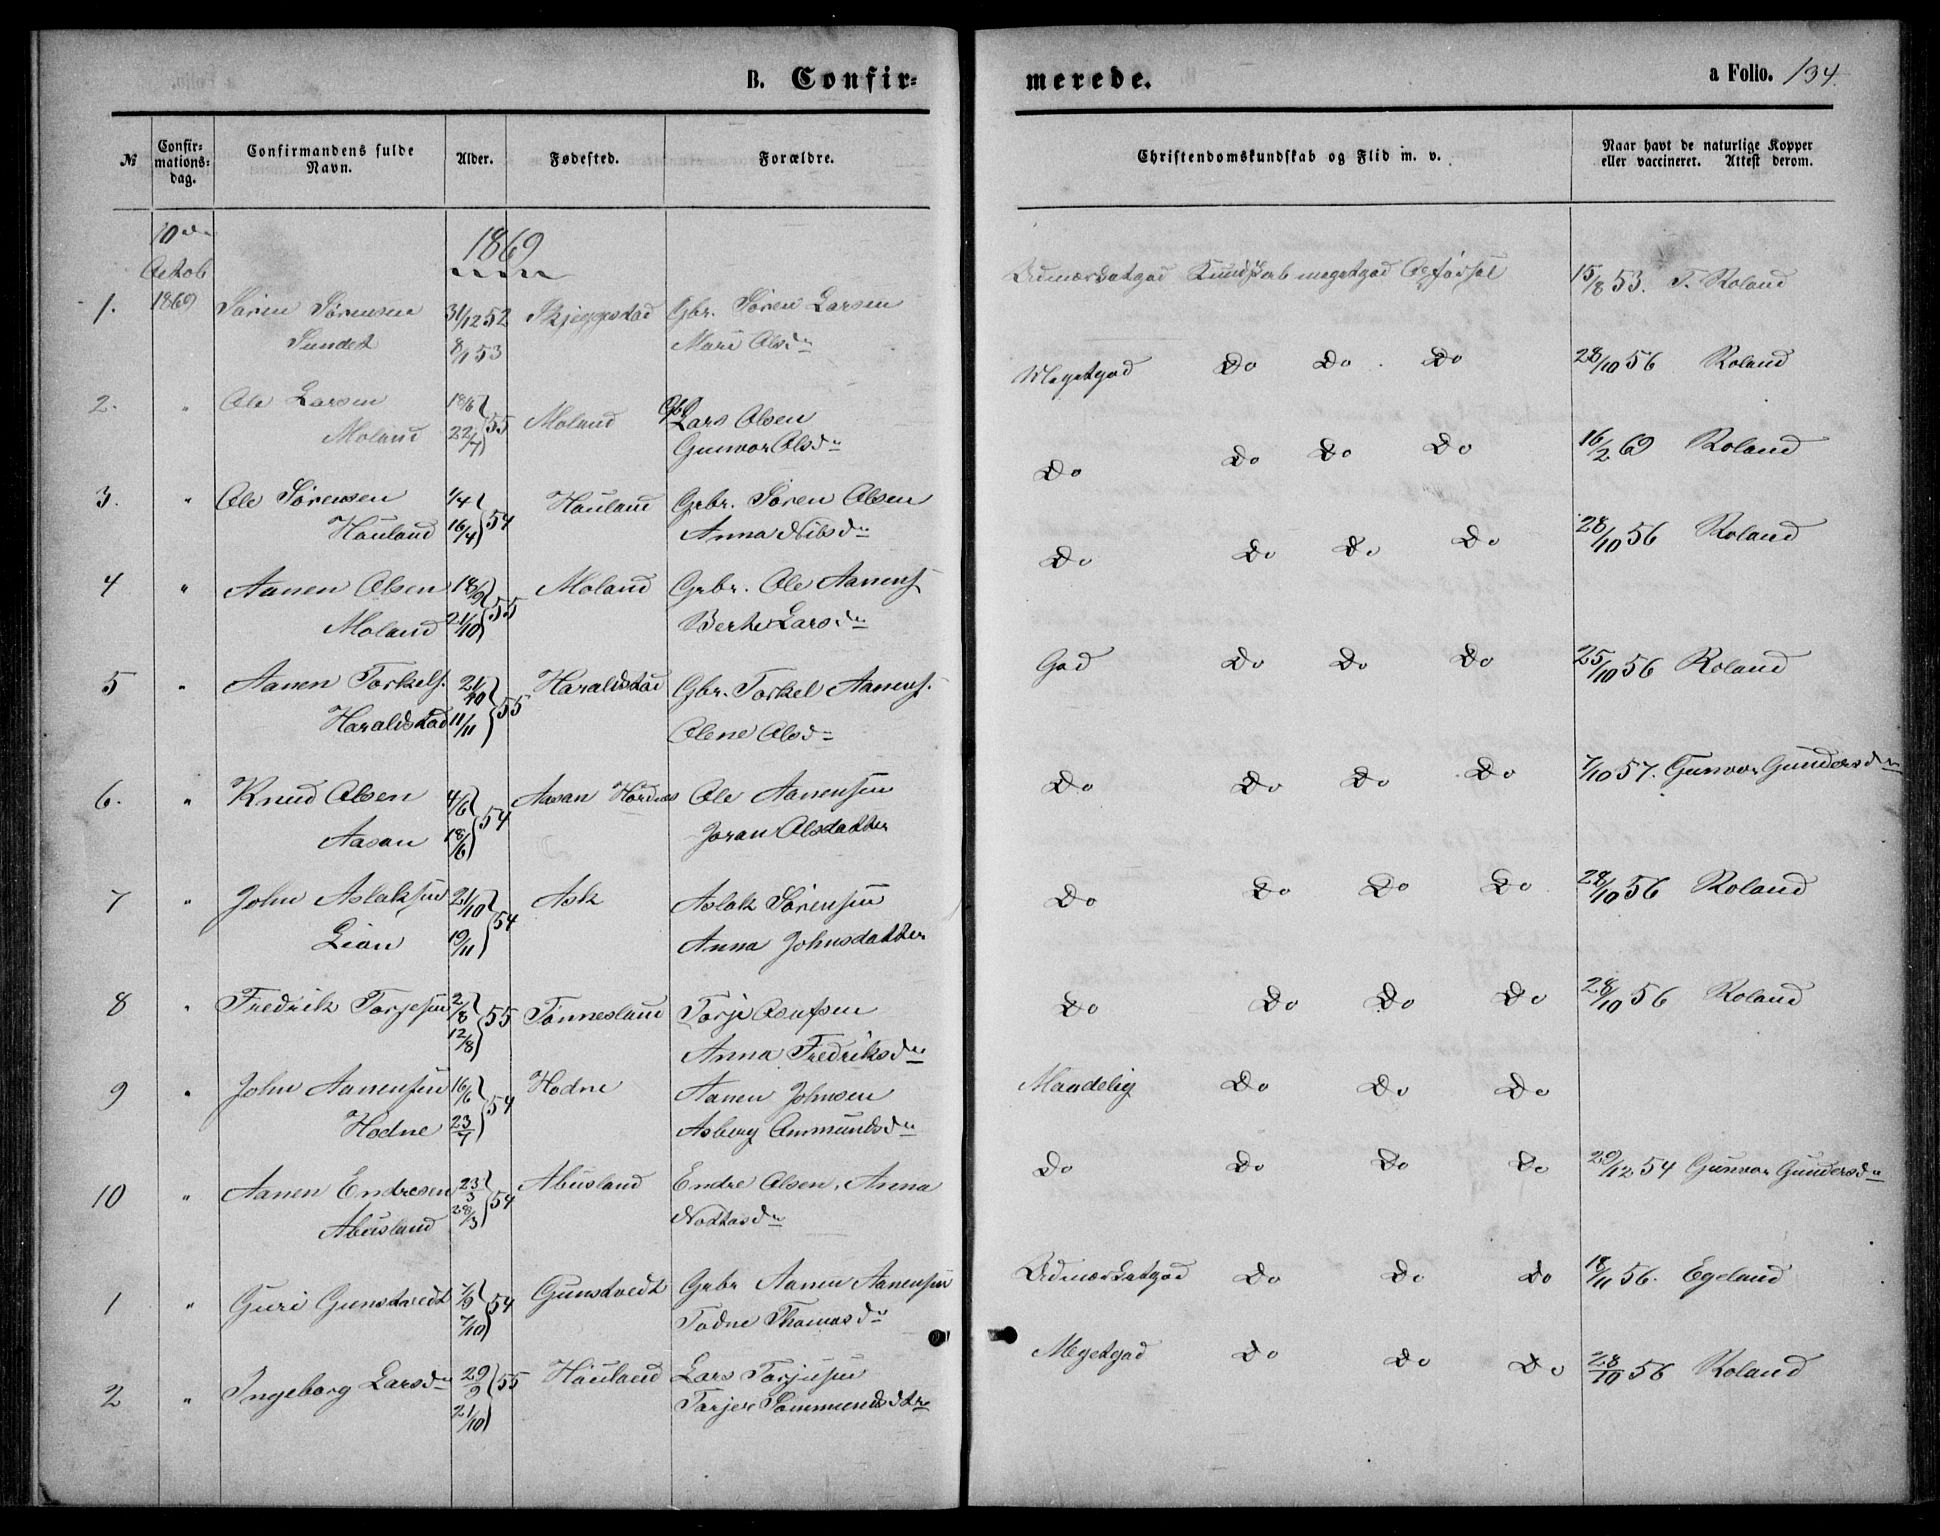 B. Confir=
merede.
a Folio. 134.
№
Confir-
mations-
dag.
Confirmandens fulde
Navn.
Alder.
Fødested.
Forældre.
Christendomskundskab og Flid m. v.
Naar havt de naturlige Kopper
eller vaccineret. Attest derom.
10de
Octob
1869
1869
1. Søren Sørensen 31/12 52 Skjeggestad Gbr. Søren Larsen
Sundet 8/1 53 Mari Olsdn
Udmærketgod Kundskab megetgod Opførsel 15/8 53. T. Roland
2. " Ole Larsen 18/6 Moland Gbr Lars Olsen
Moland 22/7 55 Gunvor Olsdn
Megetgod Do Do Do 28/10 56 Roland
3. " Ole Sørensen 1/4 Hauland Grbr. Søren Olsen
Hauland 16/4 54 Anna Nilsdn
Do Do Do Do 16/2 69 Roland
4 " Aanen Olsen 18/9 Moland Grbr. Ole Aanens.
Moland 21/10 55 Berte Larsdn
Do Do Do Do 28/10 56 Roland
5 " Aanen Torkels. 21/10 Haraldstad Gbr. Torkel Aanens.
Haraldstad 11/11 55 Olene Olsdn
God Do Do Do 25/10 56 Roland
6. " Knud Olsen 4/6 Aasan Hordnes Ole Aanensen
Aasan 18/6 54 Joran Olsdatter
Do Do Do Do 7/10 57. Gunvor Gundersdn
7 " John Aslaksen 21/10 Ask Aslak Sørensen
Lian 19/11 54 Anna Johnsdatter
Do Do Do Do 28/10 56 Roland
8 " Fredrik Torjesen 2/8 55 Tonnesland Torje Osufsen
12/8 Anna Fredriksdn
Do Do Do Do 28/10 56 Roland
9 " John Aanensen 16/6 Hodne Aanen Johnsen
Hodne 23/7 54 Asberg Ommundsdn
Maadelig Do Do Do
10 " Aanen Endresen 23/3 Abusland Endre Olsen, Anna
Abusland 28/3 54 Nottosdn
Do Do Do Do 29/12 54 Gunvor Gundersdn
1 " Guri Gunstvedt 7/9 Gunstvedt Grbr Aanen Aanensen
7/10 54 Todne Thomasdn
Udmærketgod Do Do Do 18/11 56. Egeland
2 " Ingeborg Larsdn 29/9 55 Hauland Lars Torjusen
21/10 Torjer Sommundsdtr
Megetgod Do Do Do 28/10 56 Roland